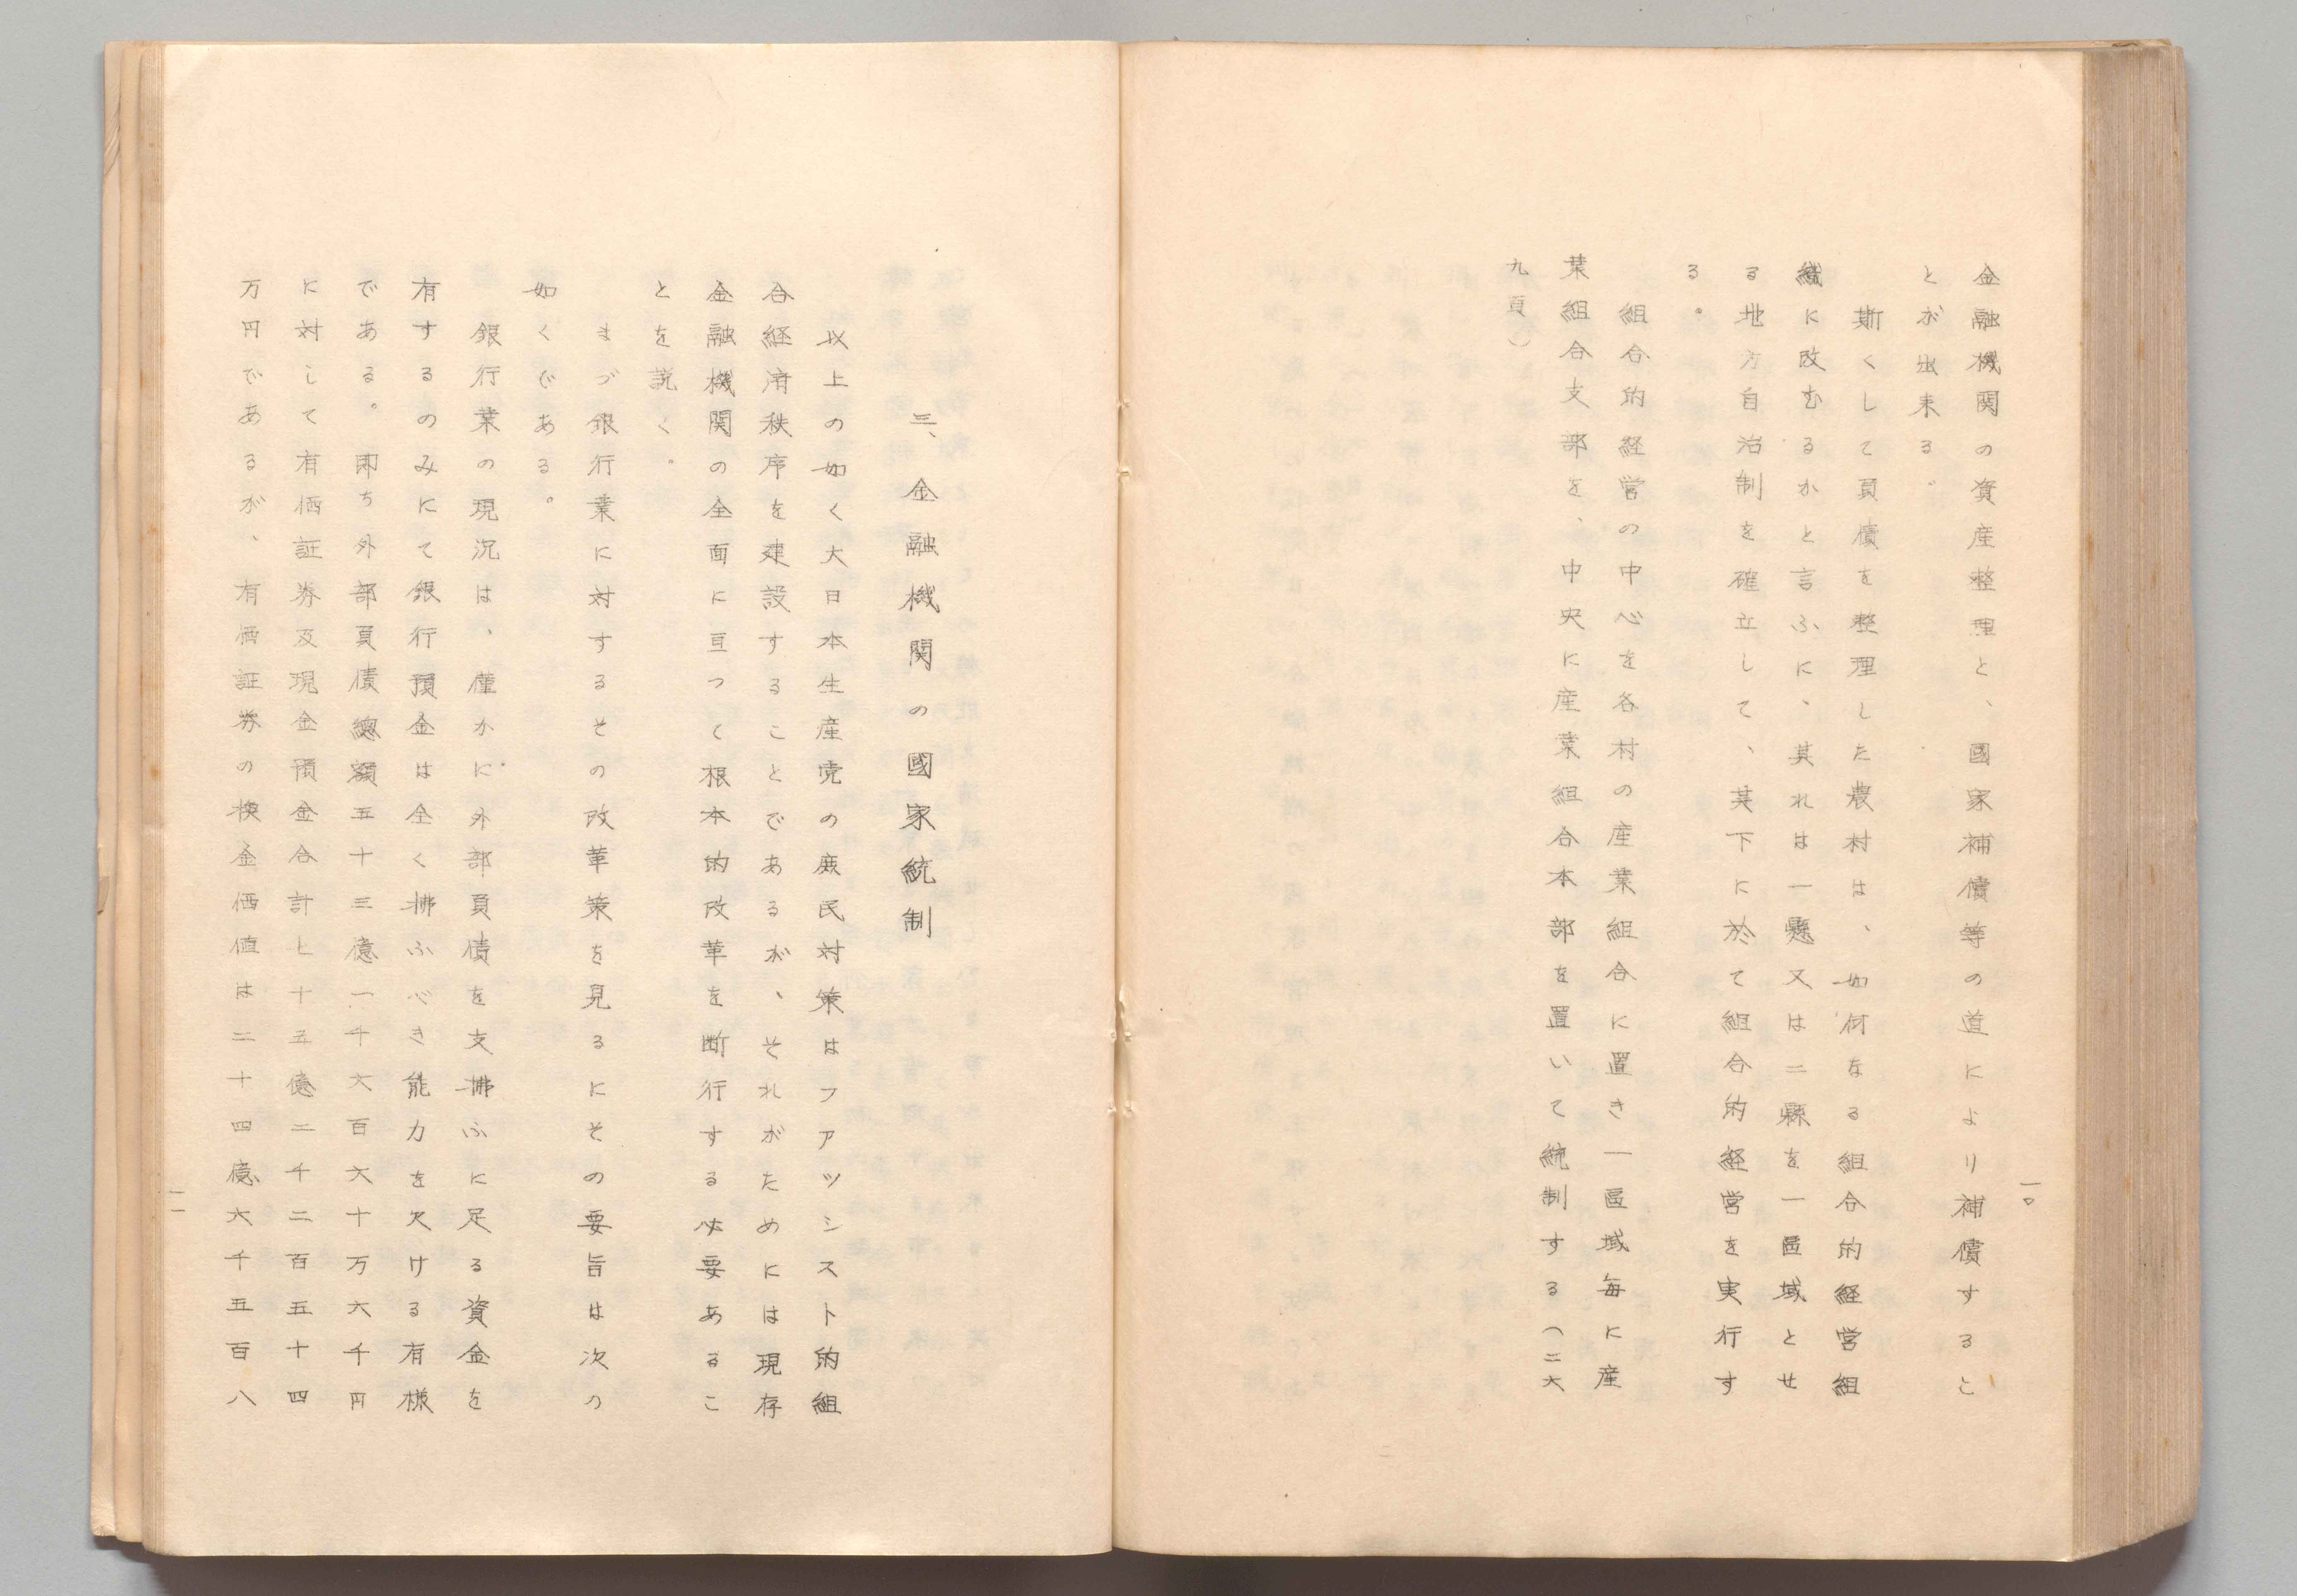 金融機関の資産整理と、國家補償等の道により補償すること
とが出来る。
斯くして負債を整理した農村は、如何なる組合的経営組
織に改むるかと言ふに、其れは一縣又は二縣を一區域とせ
る地方自治制を確立して、其下に於て組合的経営を実行す
る。
組合的経営の中心を各村の産業組合に置き一區域毎に産
業組合支部を、中央に産業組合本部を置いて統制する(二六
九頁)
一〇
三、金融機関の國家統制
以上の如く大日本生産党の庶民対策はファッシスト的組
合経済秩序を建設することであるが、それがためには現存
金融機関の全面に亘つて根本的改革を断行する必要あるこ
とを説く。
まづ銀行業に対するその改革策を見るにその要旨は次の
如くである。
銀行業の現況は、僅かに外部負債を支拂ふに足る資金を
有するのみにて銀行預金は全く拂ふべき能力を欠ける有様
である。即ち外部負債總額五十三億一千六百六十万六千円
に対して有価証券及現金預金合計七十五億二千二百五十四
万円であるが、有価証券の換金価値は二十四億六千五百八
一一